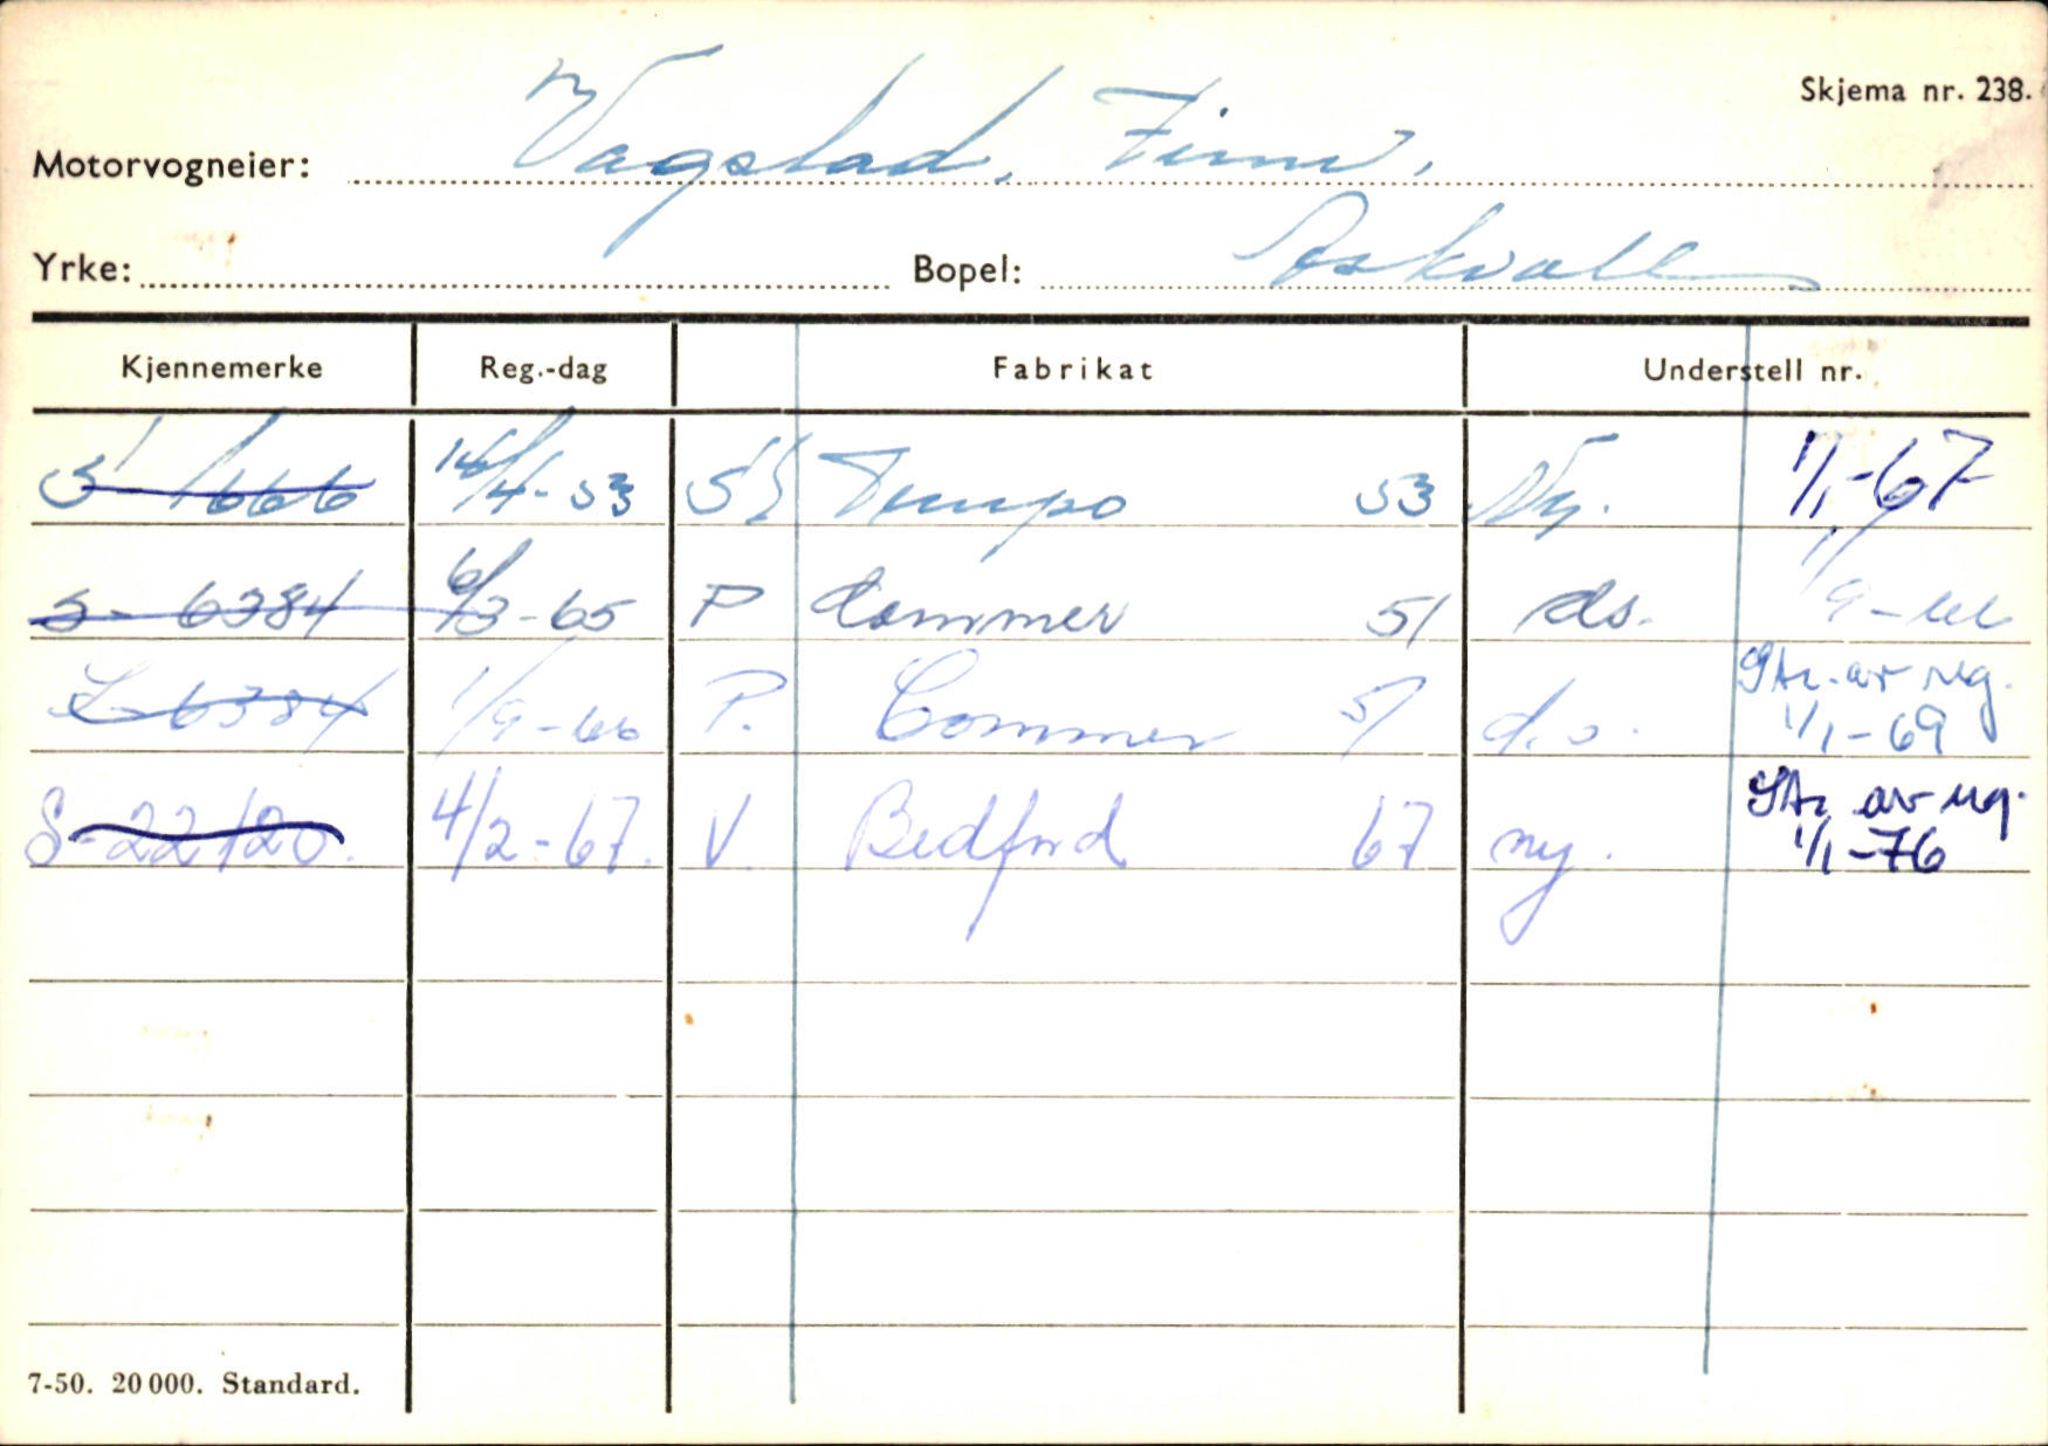 Skjema nr. 238.
Motorvogneier: Vagstad, Finn.
Yrke: Bopel: Askvoll
Kjennemerke Reg.-dag Fabrikat Understell nr.
S 1666 14/4-53 Tempo 53 Ny. 1/1-67
S- 6384 6/3-65 P Commer 51 ds. 1/9-66
6384 1/9-66 P. Commer 51 d.s. Str. av reg. 1/1-69
S-22120. 4/2-67. V. Bedford 67 ny. Str av reg. 1/1-76
7-50. 20 000. Standard.